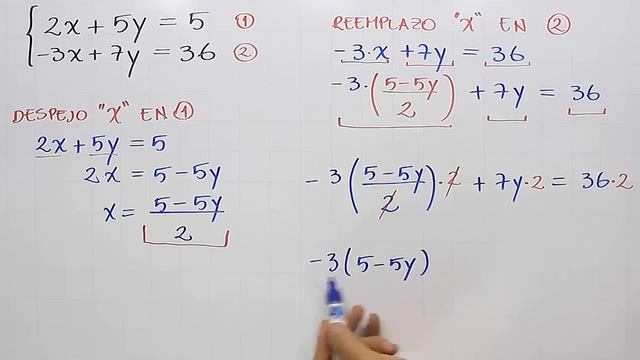 2x + 5y = 5 ①
-3x + 7y = 36 ②
DESPEJO "X" EN ①
2x + 5y = 5
2x = 5 - 5y
x = (5 - 5y)/2
REEMPLAZO "X" EN ②
-3·x + 7y = 36
-3·((5 - 5y)/2) + 7y = 36
-3((5 - 5y)/2)·2 + 7y·2 = 36·2
-3(5 - 5y)